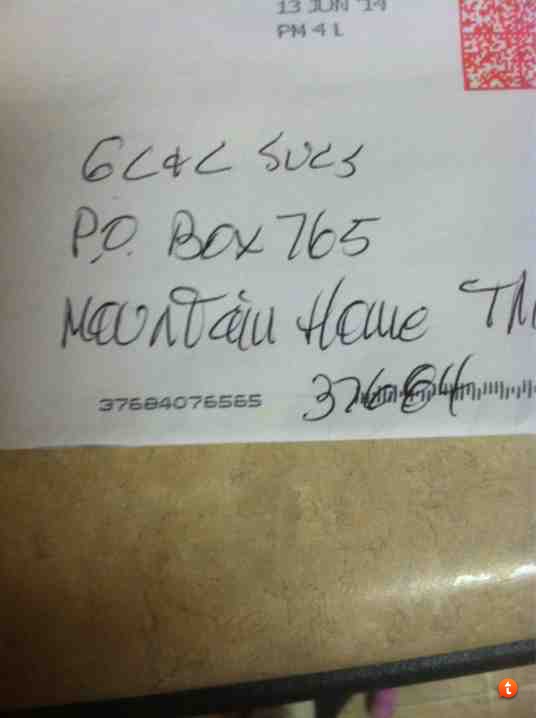 13 JUN '14
PM 4 L
GC&C SVCS
P.O. BOX 765
Mountain Home TN
37684
37684076565
t